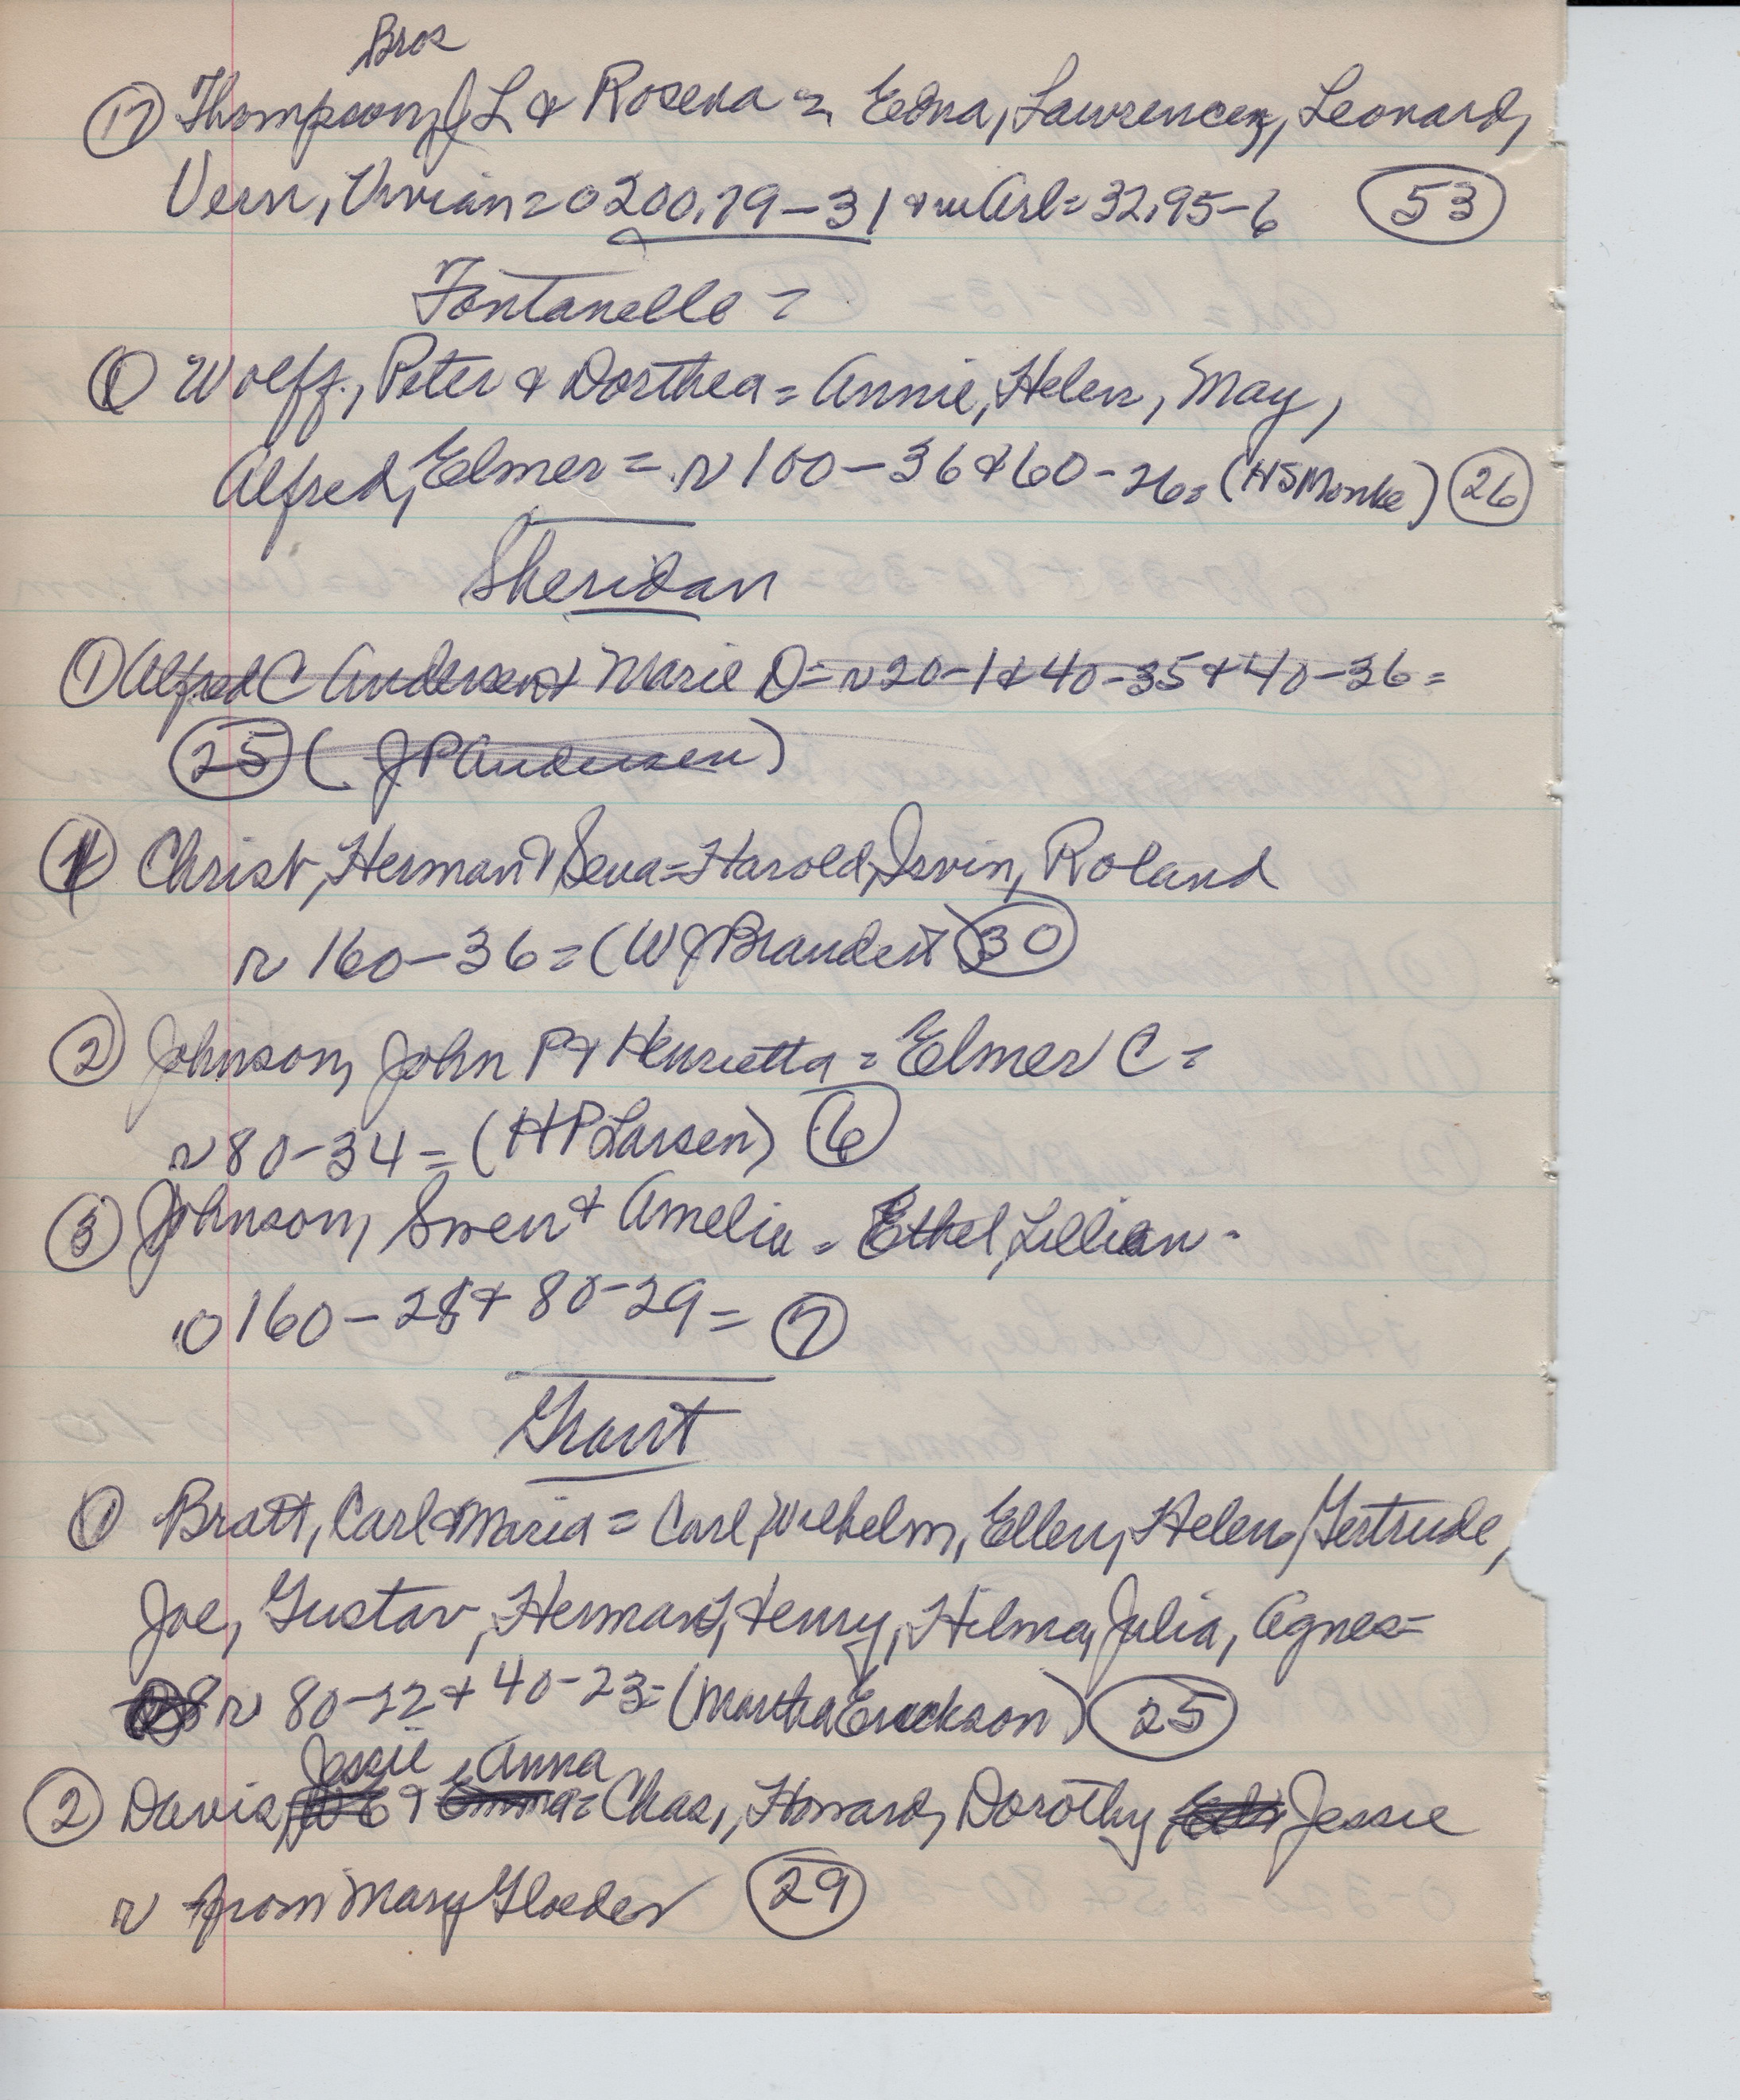 Bros
(17) Thompson, J L & Rosena = Edna, Lawrence, Leonard,
Vern, Vivian = o 200.79-31 & in Arl = 32.95-6 (53)
Fontanelle =
(1) Wolff., Peter & Dorthea = Annie, Helen, May,
Alfred, Elmer = r 100-36 & 60-26 = (HS Monke) (26)
Sheridan
(1) Alfred C Andersen & Marie D = r 20-1 & 40-35 & 40-36 =
(25) (J P Andersen)
(1) Christ, Herman & Sena = Harold, Irvin, Roland
r 160-36 = (W J Brandert) (30)
(2) Johnson, John P & Henrietta = Elmer C =
r 80-34 = (H P Larsen) (6)
(3) Johnson, Swen & Amelia = Ethel, Lillian -
o 160-28 & 80-29 = (7)
Grant
(1) Bratt, Carl & Maria = Carl, Wilhelm, Ellen, Helen, Gertrude,
Joe, Gustav, Herman, Henry, Hilma, Julia, Agnes =
r 80-22 & 40-23 = (Martha Erickson) (25)
Jessie Anna
(2) Davis, & Emma = Chas., Howard, Dorothy, Jessie
r from Mary Gloeder (29)